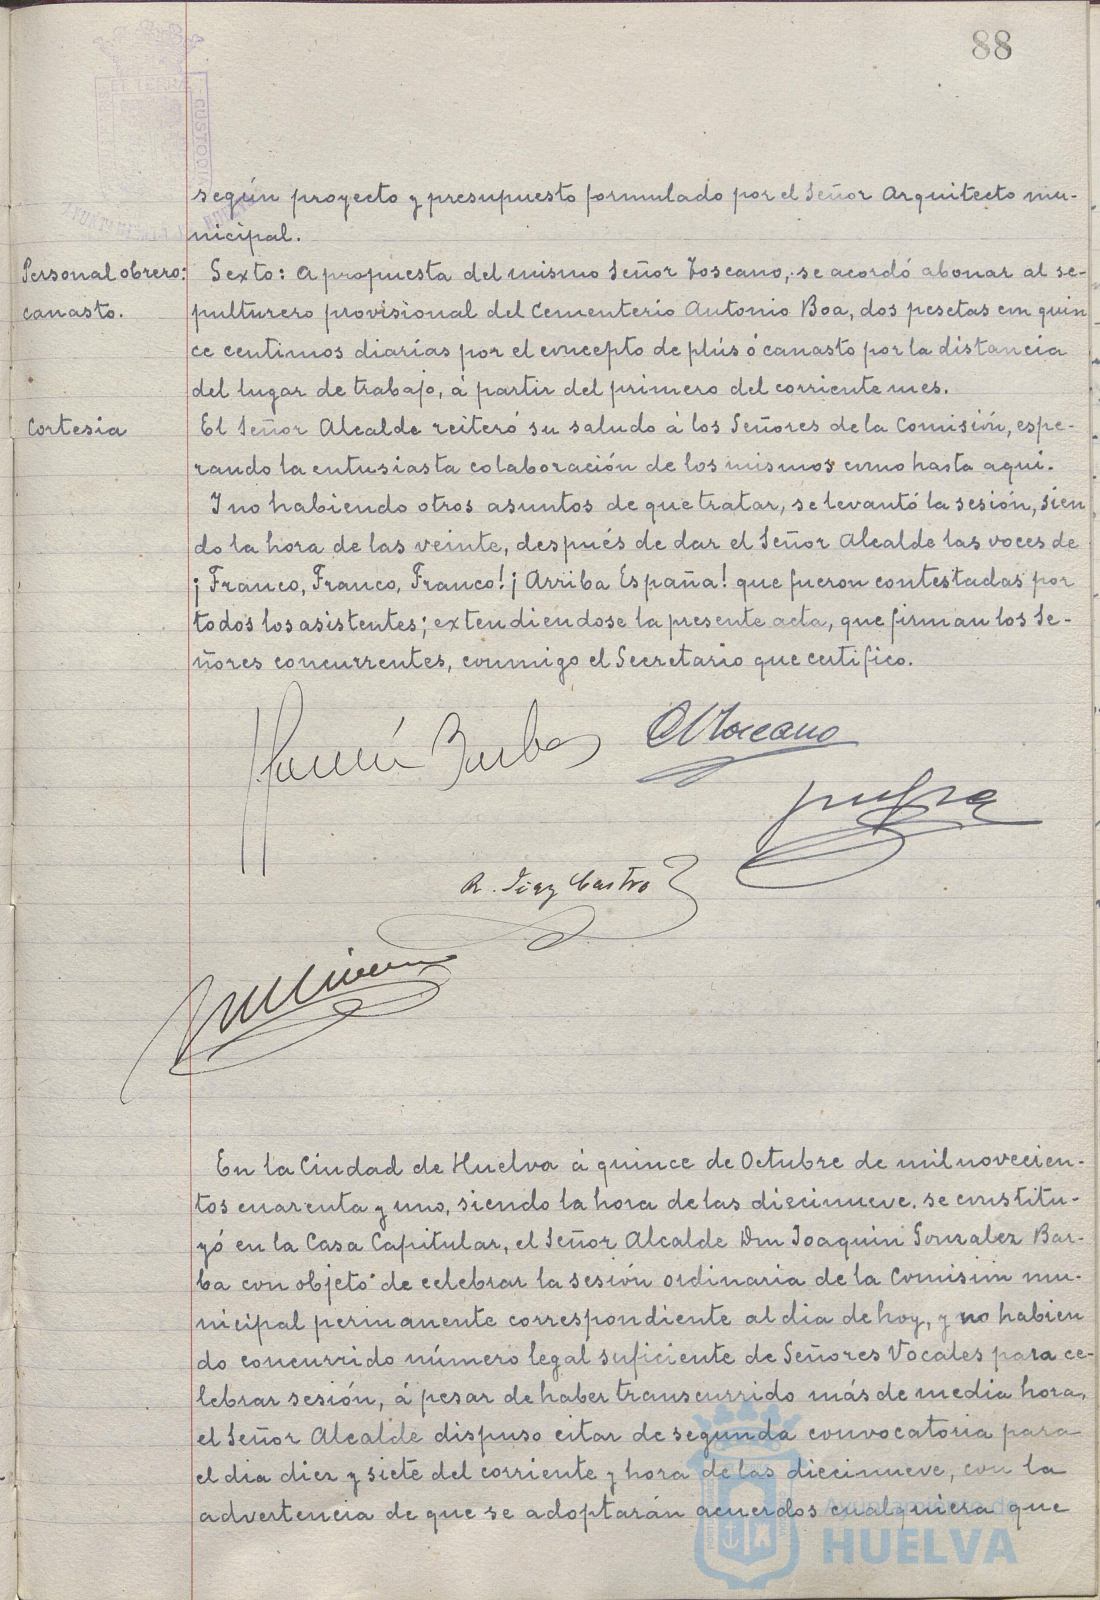 88
según proyecto y presupuesto formulado por el Señor Arquitecto mu-
nicipal.
Personal obrero:
canasto.
Sexto: A propuesta del mismo Señor Toscano, se acordó abonar al se-
pulturero provisional del Cementerio Antonio Boa, dos pesetas con quin
ce centimos diarias por el concepto de plús ó canasto por la distancia
del lugar de trabajo, á partir del primero del corriente mes.
Cortesia
El Señor Alcalde reiteró su saludo á los Señores de la Comisión, espe-
rando la entusiasta colaboración de los mismos como hasta aqui.
Y no habiendo otros asuntos de que tratar, se levantó la sesión, sien
do la hora de las veinte, después de dar el Señor Alcalde las voces de
¡Franco, Franco, Franco! ¡Arriba España! que fueron contestadas por
todos los asistentes; extendiendose la presente acta, que firman los Se-
ñores concurrentes, conmigo el Secretario que certifico.
Barba
Toscano
R. Diaz Castro
En la Ciudad de Huelva á quince de Octubre de mil novecien-
tos cuarenta y uno, siendo la hora de las diecinueve. se constitu-
yó en la Casa Capitular, el Señor Alcalde Don Joaquin Gonzalez Bar-
ba con objeto de celebrar la sesión ordinaria de la Comisión mu-
nicipal permanente correspondiente al dia de hoy, y no habien
do concurrido número legal suficiente de Señores Vocales para ce-
lebrar sesión, á pesar de haber transcurrido más de media hora,
el Señor Alcalde dispuso citar de segunda convocatoria para
el dia diez y siete del corriente y hora de las diecinueve, con la
advertencia de que se adoptarán acuerdos cualquiera que
Ayuntamiento de
HUELVA